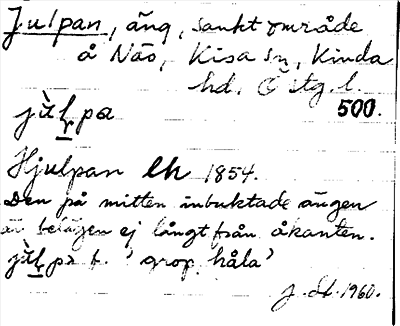 Julpan, äng, sankt område
å Näs, Kisa sn, Kinda
hd. Östg. l.
jùlpa 500.
Hjulpan lk 1854.
Den på mitten inbuktade ängen
är belägen ej långt från åkanten.
jùlpa f. 'grop, håla'
1960.